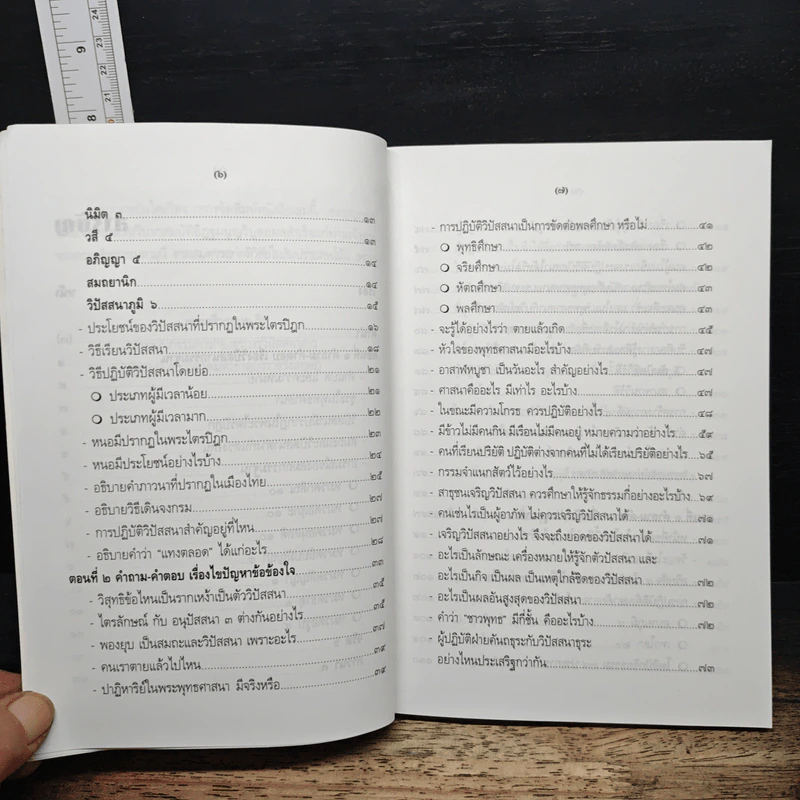 9
8
24
23
22
21
(๖)
นิมิต ๓ ๑๓
วสี ๕ ๑๓
อภิญญา ๕ ๑๔
สมถยานิก ๑๔
วิปัสสนาภูมิ ๖ ๑๕
- ประโยชน์ของวิปัสสนาที่ปรากฏในพระไตรปิฎก ๑๖
- วิธีเรียนวิปัสสนา ๑๘
- วิธีปฏิบัติวิปัสสนาโดยย่อ ๒๑
❍ ประเภทผู้มีเวลาน้อย ๒๑
❍ ประเภทผู้มีเวลามาก ๒๒
- หนอมีปรากฏในพระไตรปิฎก ๒๓
- หนอมีประโยชน์อย่างไรบ้าง ๒๔
- อธิบายคำภาวนาที่ปรากฏในเมืองไทย ๒๕
- อธิบายวิธีเดินจงกรม ๒๗
- การปฏิบัติวิปัสสนาสำคัญอยู่ที่ไหน ๒๗
- อธิบายคำว่า “แทงตลอด” ได้แก่อะไร ๒๘
ตอนที่ ๒ คำถาม-คำตอบ เรื่องไขปัญหาข้อข้องใจ ๓๓
- วิสุทธิข้อไหนเป็นรากเหง้าเป็นตัววิปัสสนา ๓๕
- ไตรลักษณ์ กับ อนุปัสสนา ๓ ต่างกันอย่างไร ๓๕
- พองยุบ เป็นสมถะและวิปัสสนา เพราะอะไร ๓๗
- คนเราตายแล้วไปไหน ๓๙
- ปาฏิหาริย์ในพระพุทธศาสนา มีจริงหรือ ๓๙
(๗)
- การปฏิบัติวิปัสสนาเป็นการขัดต่อพลศึกษา หรือไม่ ๔๑
❍ พุทธิศึกษา ๔๒
❍ จริยศึกษา ๔๒
❍ หัตถศึกษา ๔๓
❍ พลศึกษา ๔๓
- จะรู้ได้อย่างไรว่า ตายแล้วเกิด ๔๕
- หัวใจของพุทธศาสนามีอะไรบ้าง ๔๗
- อาสาฬหบูชา เป็นวันอะไร สำคัญอย่างไร ๔๗
- ศาสนาคืออะไร มีเท่าไร อะไรบ้าง ๔๗
- ในขณะมีความโกรธ ควรปฏิบัติอย่างไร ๔๘
- มีข้าวไม่มีคนกิน มีเรือนไม่มีคนอยู่ หมายความว่าอย่างไร ๕๙
- คนที่เรียนปริยัติ ปฏิบัติต่างจากคนที่ไม่ได้เรียนปริยัติอย่างไร ๖๕
- กรรมจำแนกสัตว์ไว้อย่างไร ๖๗
- สาธุชนเจริญวิปัสสนา ควรศึกษาให้รู้จักธรรมกี่อย่างอะไรบ้าง ๖๙
- คนเช่นไรเป็นผู้อาภัพ ไม่ควรเจริญวิปัสสนาได้ ๗๑
- เจริญวิปัสสนาอย่างไร จึงจะถึงยอดของวิปัสสนาได้ ๗๑
- อะไรเป็นลักษณะ เครื่องหมายให้รู้จักตัววิปัสสนา และ
อะไรเป็นกิจ เป็นผล เป็นเหตุใกล้ชิดของวิปัสสนา ๗๒
- อะไรเป็นผลอันสูงสุดของวิปัสสนา ๗๒
- คำว่า “ชาวพุทธ” มีกี่ชั้น คืออะไรบ้าง ๗๒
- ผู้ปฏิบัติฝ่ายคันถธุระกับวิปัสสนาธุระ
อย่างไหนประเสริฐกว่ากัน ๗๓